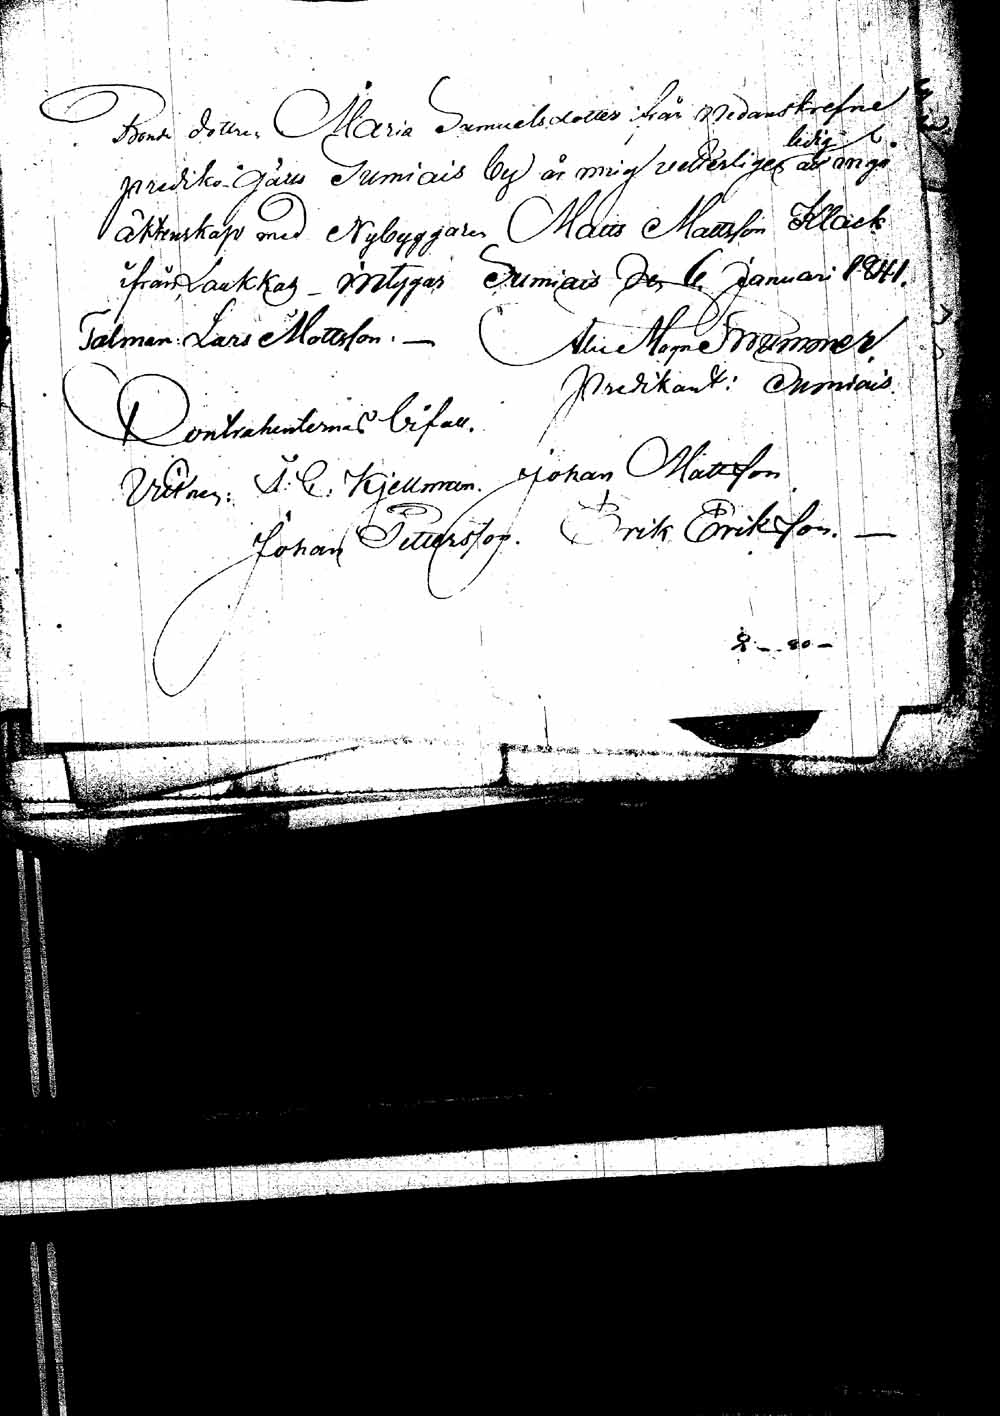 Bonde dottren Maria Samuelsdotter från Nedanskrefne
prediko-gälls Sumiais by är mig vetterligen ledig at ingå
äktenskap med Nybyggaren Matts Mattsson Klack
ifrån Laukkas _ intygar Sumiais Den 6 Januari 1841.
Talman: Lars Mattsson. —
Predikant: Sumiais.
Kontrahenternas bifall.
Vitnen: I. C. Kjellman. Johan Mattsson
Johan Pettersson. Erik Eriksson. —